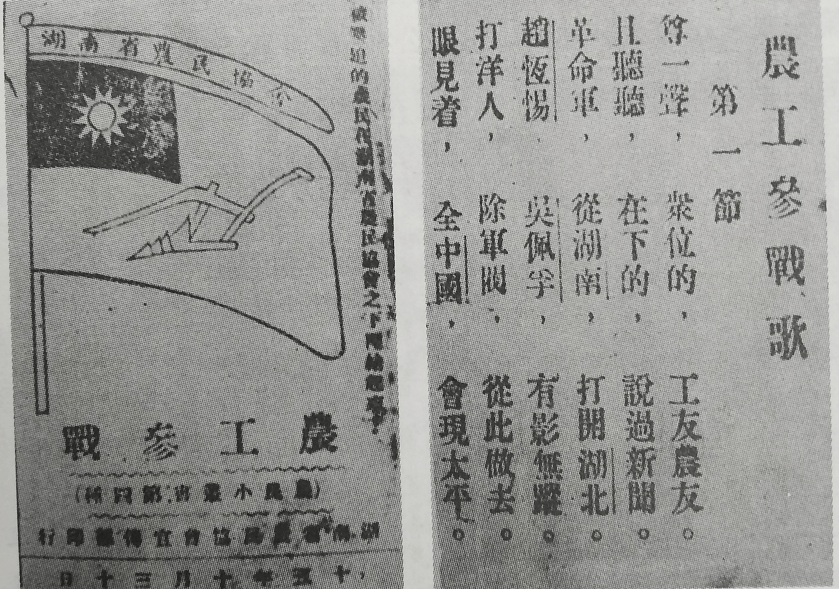 農工參戰歌
第一節
尊一聲，衆位的，工友農友。
且聽聽，在下的，說過新聞。
革命軍，從湖南，打開湖北。
趙恆惕，吳佩孚，有影無蹤。
打洋人，除軍閥，從此做去。
眼見着，全中國，會現太平。
被壓迫的農民湖南省農民協會之下團結起來
湖南省農民協會
農工參戰
（農民小叢書第四種）
湖南省農民協會宣傳部印行
十五年十月三十日